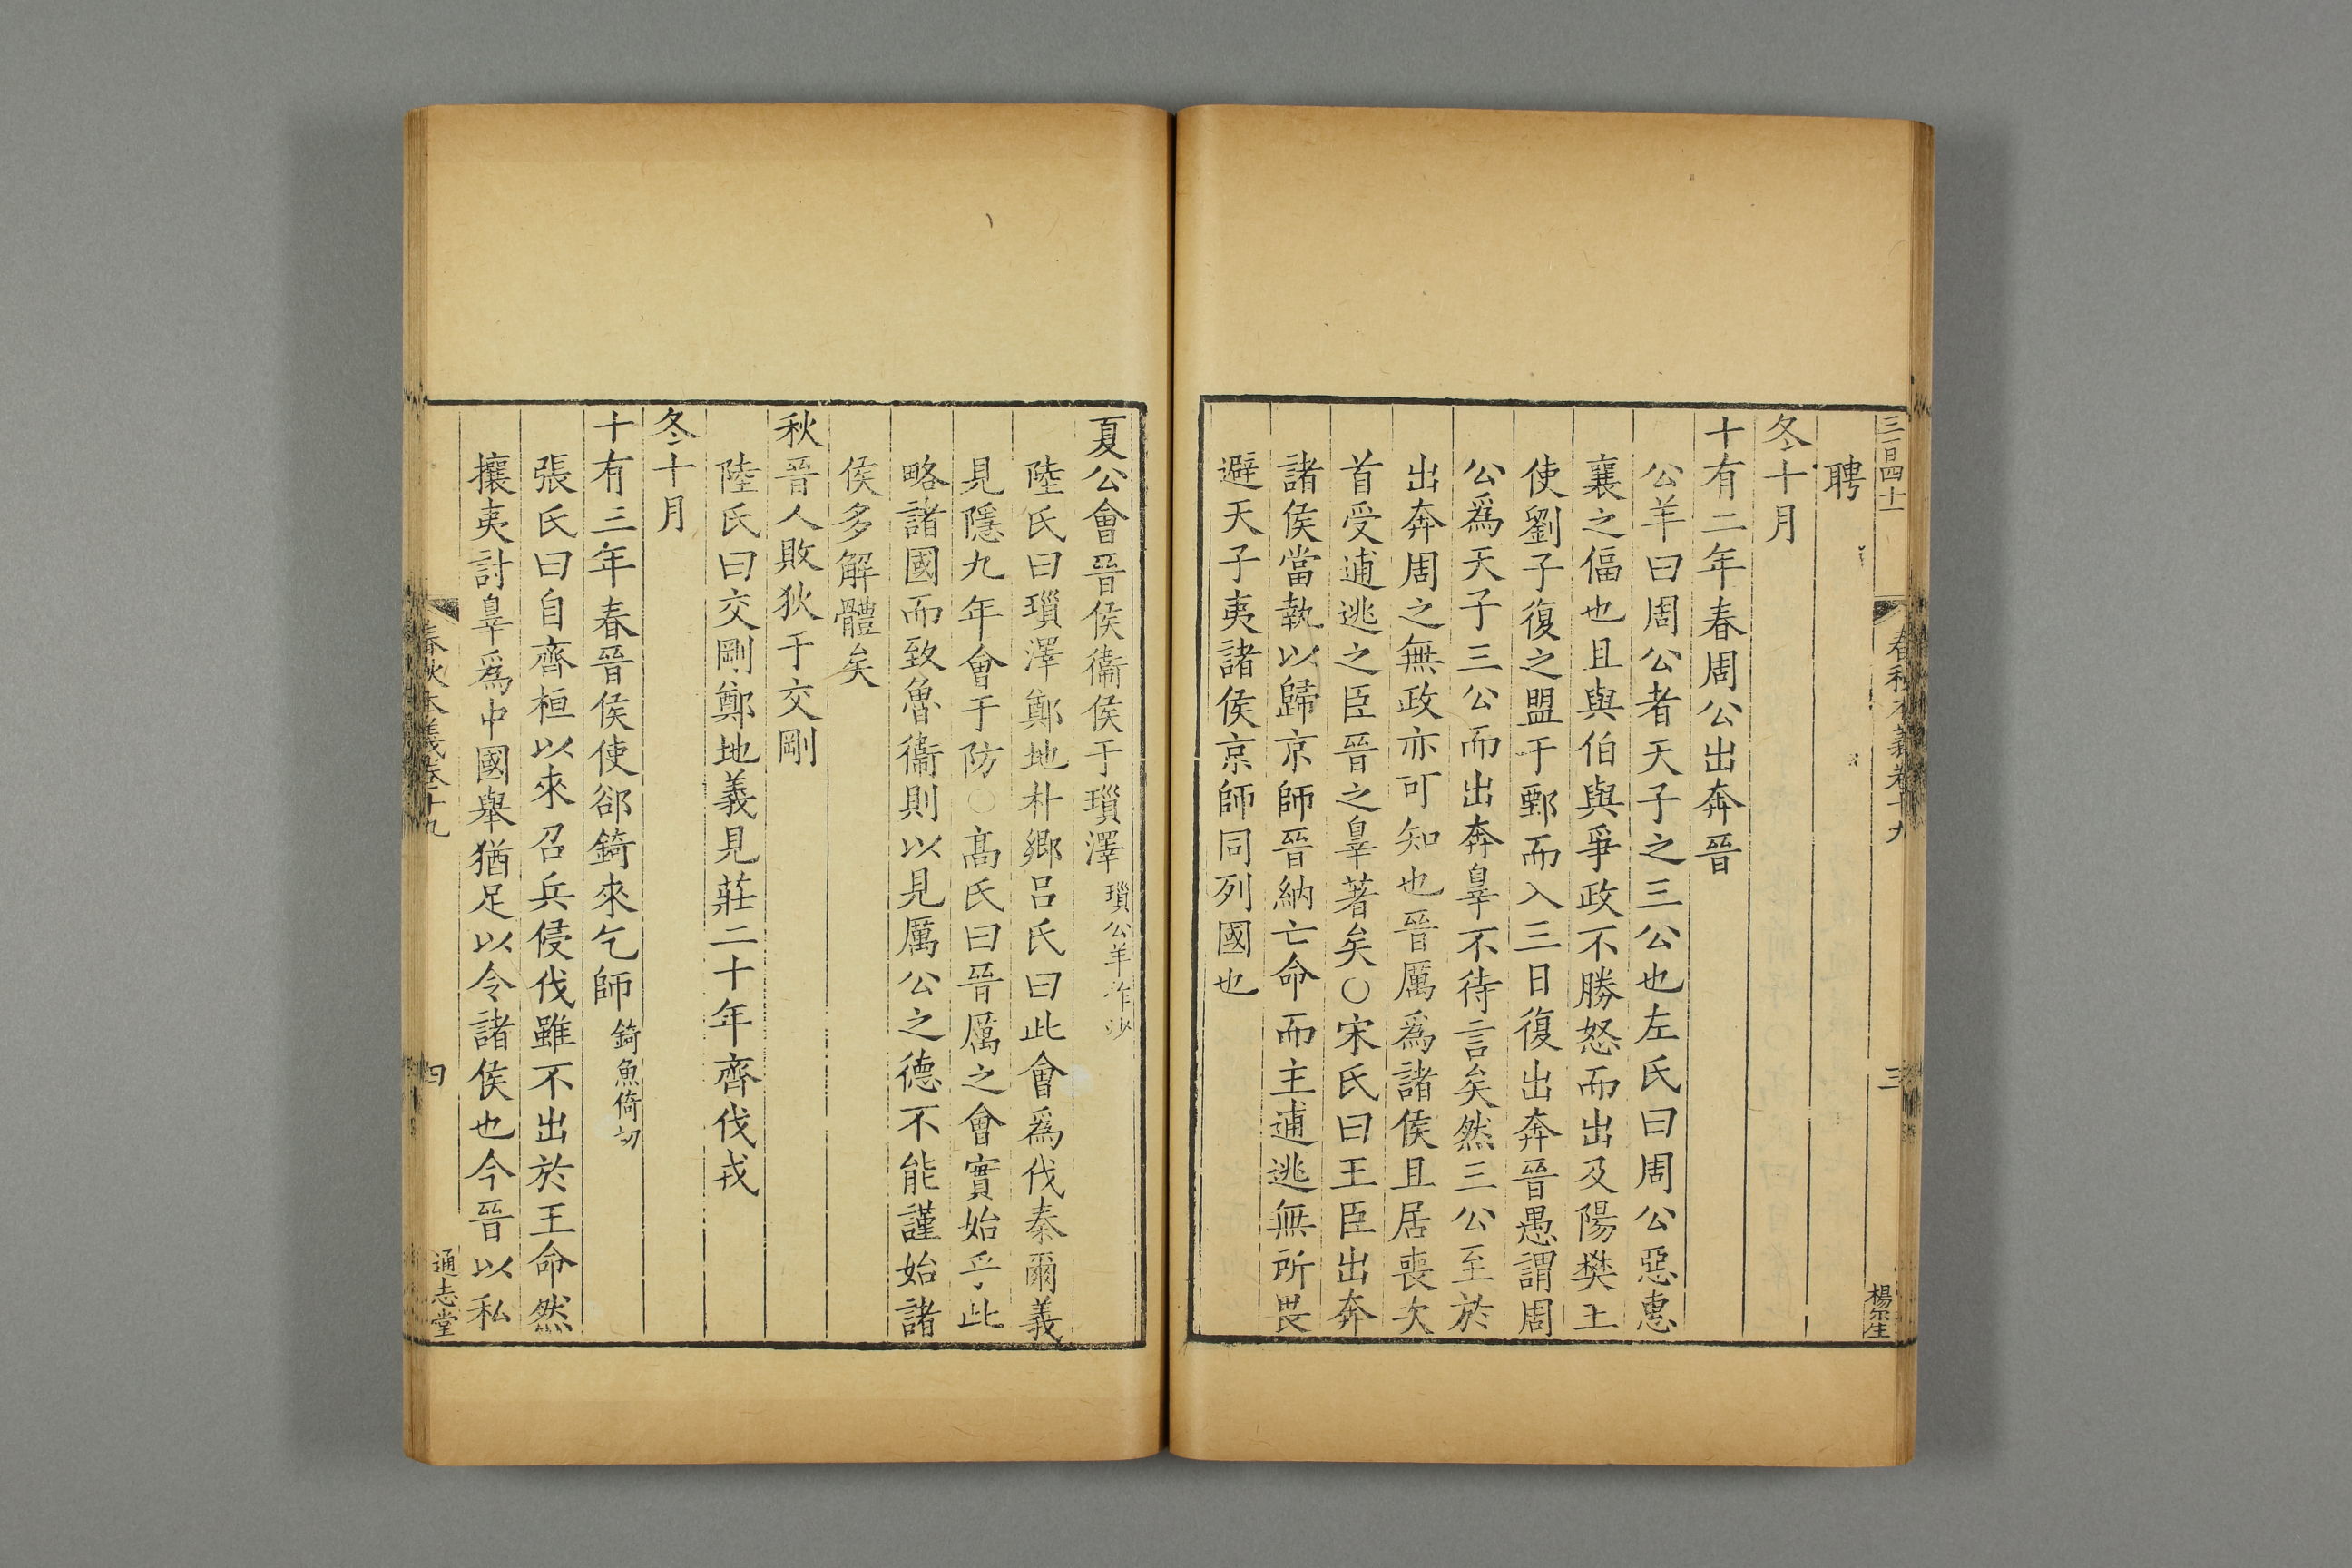 三百四十
春秋本義卷十九
三
楊尔生
聘
冬十月
十有二年春周公出奔晉
公羊曰周公者天子之三公也左氏曰周公惡惠
襄之偪也且與伯與爭政不勝怒而出及陽樊王
使劉子復之盟于鄄而入三日復出奔晉愚謂周
公爲天子三公而出奔辠不待言矣然三公至於
出奔周之無政亦可知也晉厲爲諸侯且居喪次
首受逋逃之臣晉之辠著矣○宋氏曰王臣出奔
諸侯當執以歸京師晉納亡命而主逋逃無所畏
避天子夷諸侯京師同列國也
夏公會晉侯衞侯于瑣澤瑣公羊作沙
陸氏曰瑣澤鄭地朴鄉呂氏曰此會爲伐秦爾義
見隱九年會于防○髙氏曰晉厲之會實始乎此
略諸國而致魯衞則以見厲公之德不能謹始諸
侯多解體矣
秋晉人敗狄于交剛
陸氏曰交剛鄭地義見莊二十年齊伐戎
冬十月
十有三年春晉侯使郤錡來乞師錡魚倚切
張氏曰自齊桓以來召兵侵伐雖不出於王命然
攘夷討辠爲中國舉猶足以令諸侯也今晉以私
春秋本義卷十九
四
通志堂